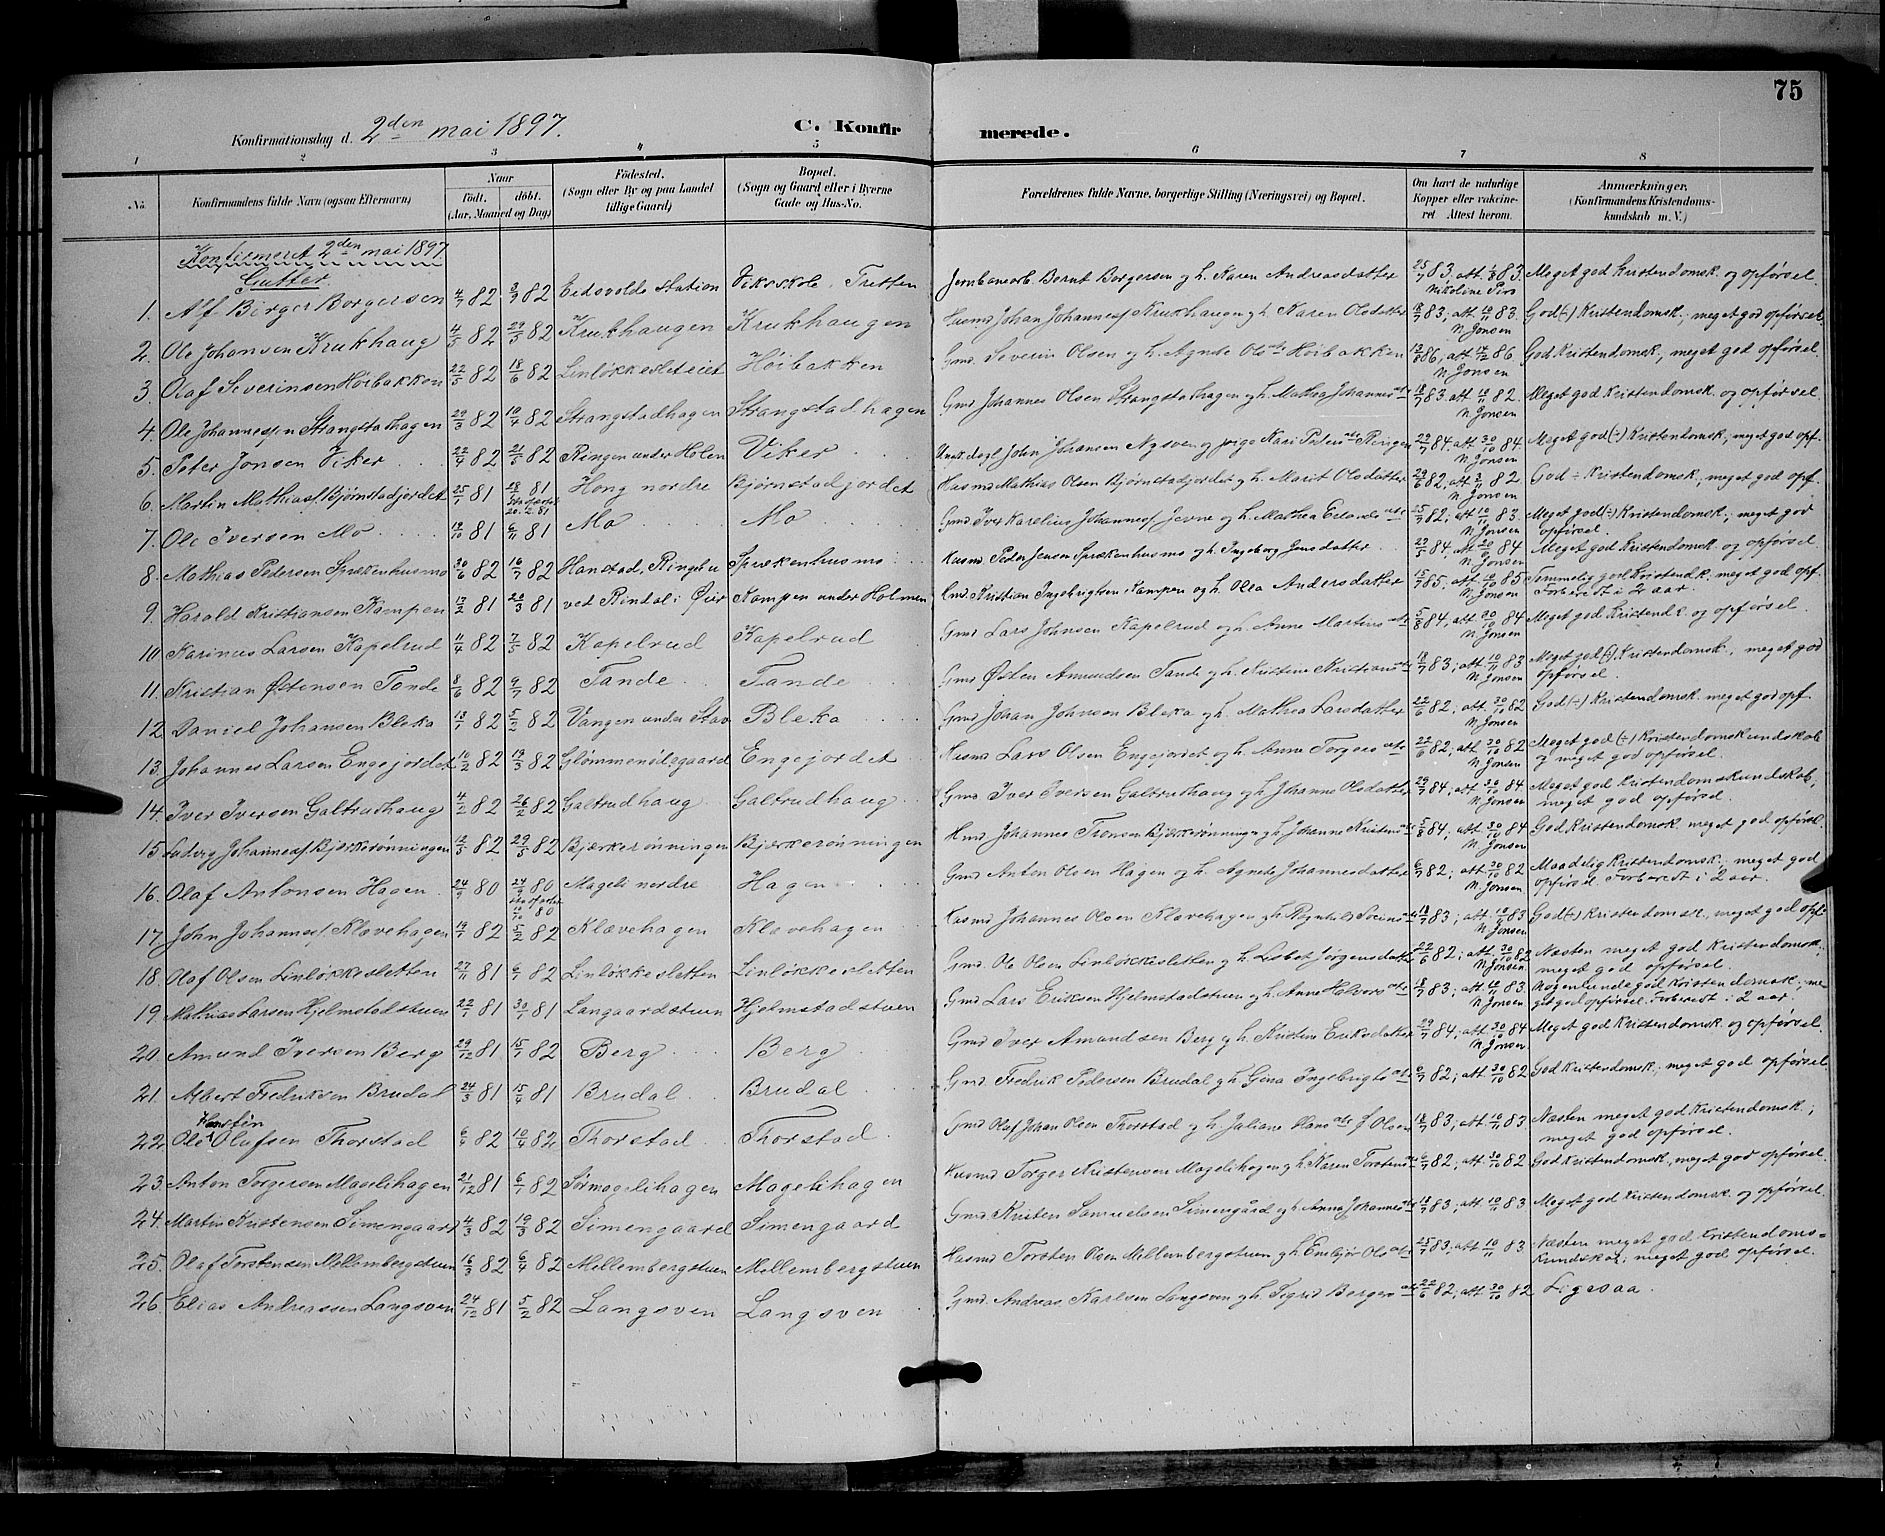 75
Konfirmationsdag d. 2den mai 1897. C. Konfirmerede.
1 2 3 4 5 6 7 8
No. Konfirmandens fulde Navn (ogsaa Efternavn) Naar født. døbt. (Aar, Maaned og Dag) Fødested. (Sogn eller By og paa Landet tillige Gaard) Bopæl. (Sogn og Gaard eller i Byerne Gade og Hus-No. Forældrenes fulde Navne, borgerlige Stilling (Næringsvei) og Bopæl. Om havt de naturlige Kopper eller vakcineret. Attest herom. Anmærkninger. (Konfirmandens Kristendomskundskab m. V.)
Konfirmeret 2den mai 1897
Gutter.
1. Alf Birger Borgersen 4/7 82 3/9 82 Eidsvolds Station Vikeskole, Tretten Jernbanearb. Bernt Borgersen g h. Karen Andreasdatter 25/7 83, att. 1/8 83 Nikoline Piro Meget god kristendomsk. og opførsel.
2. Ole Johansen Krukhaug 4/5 82 29/5 82 Krukhaugen Krukhaugen Husmd Johan Johannesf Krukhaugen g h. Karen Olsdatter 18/7 83, att. 10/11 83. N. Jonsen God (-) Kristendomsk.; meget god opførsel.
3. Olaf Severinsen Høibakken 22/5 82 18/6 82 Linløkkesleteiet Høibakken Gmd. Severin Olsen g h. Agnde Olsdtr Høibakken 13/8 86, att. 14/2 86. N. Jonsen God Kristendomsk, meget god opførsel.
4. Ole Johannessen Strangstadhagen 29/3 82 10/4 82 Strangstadhagen Strangstadhagen Gmd Johannes Olsen Strangstadhagen g h. Mathea Johannesdtr 18/7 83. att 10/11 82. N. Jonsen Meget god Kristendomsk. og opførsel.
5. Peter Jonsen Viker 22/4 82 21/5 82 Ringen under Holen Viker John Johansen Nysven g pige Kari Pedersdtr Ringen 29/7 84. att 30/10 84. N. Jonsen Meget god (-) Kristendomsk.; meget god opf.
6. Martin Mathiasf. Bjørnstadjordet 25/1 81 28/1 81 20/2 81 Hong nordre Bjørnstadjordet Husmd Mathias Olsen Bjørnstadjordet g h. Marit Olsdatter 29/6 82, att 2/11 82 N. Jonsen God ÷ Kristendomsk.; meget god opf.
7. Ole Iversen Mo 19/10 81 6/11 81 Mo Mo Gmd Iver Karelius Johannesf Jevne g h. Mathea Erlandsdtr 25/7 82; att 10/11 83. N. Jonsen Meget god (÷) Kristendomsk.; meget god opførsel.
8. Mathias Pedersen Sprækenhusmo 30/6 82 16/7 82 Hanstad, Ringebu Sprækenhusmo Husmd Peder Jensen Sprækenhusmo g h. Ingeborg Jensdatter 29/5 84, att 20/10 84 N. Jonsen Meget god Kristendomsk. og opførsel.
9. Harald Kristiansen Kampen 17/2 81 20/3 81 ved Rindal i Øier Kampen under Holmen Kristian Ingebrigtsen Kampen g h. Olea Andersdatter 15/7 85, att. 12/10 85 N. Jonsen Temmelig god Kristendk.; meget god opf. Forberedt i 2 aar.
10. Karinus Larsen Kapelrud 11/4 82 7/5 82 Kapelrud Kapelrud Gmd Lars Johnsen Kapelrud g h. Anne Martinsdtr 5/8 84, att 30/10 84 N. Jonsen Meget god Kristendk. og opførsel.
11. Kristian Østensen Tande 8/6 82 9/7 82 Tande Tande Gmd Østen Amundsen Tande g h. Kristine Kristiansdtr 18/7 83; att 10/11 83 N. Jonsen Meget god (-) Kristendomsk., meget god opførsel.
12. Daniel Johansen Bleka 13/1 82 5/2 82 Vangen under Stav Bleka Gmd Johan Johnsen Bleka g h. Mathea Larsdatter 22/6 82; att 30/10 82 N. Jonsen God (÷) Kristendomsk. meget god opf.
13. Johannes Larsen Engejordet 10/2 82 19/3 82 Glømmenødegaard Engejordet Husmd Lars Olsen Engejordet g h. Anne Torgersdtr 22/6 82; att 30/10 82 N. Jonsen Meget god (÷) Kristendomskundskab og meget god opførsel.
14. Iver Iversen Galtrudhaug 4/2 82 26/2 82 Galtrudhaug Galtrudhaug Gmd Iver Iversen Galtrudhaug g h. Johanne Olsdatter 29/7 84; att 30/10 84 N. Jonsen Meget god Kristendomskundskab, meget god opførsel.
15 Ludvig Johannesf. Bjerkerønningen 12/5 82 29/5 82 Bjærkerønningen Bjerkerønningen Hmd Johannes Tronsen Bjærkerønningen g h. Johanne Kristensdtr 5/8 84, att 30/10 84 N. Jonsen God Kristendomsk. meget god opførsel.
16. Olaf Antonsen Hagen 24/9 80 24/9 80 80 Mageli nordre Hagen Gmd Anton Olsen Hagen g h. Agnde Johannesdatter 6/7 82; att 30/10 82 N. Jonsen Maadelig Kristendomsk.; meget god opførsel. Forberedt i 2 aar.
17. John Johannesf. Klævehagen 14/1 82 5/2 82 Klævehagen Klævehagen Husmd Johannes Olsen Klævehagen g h. Ragnhild 18/7 83; att 10/11 83 N. Jonsen God (÷) Kristendomsk., meget god opf.
18. Olaf Olsen Linløkkesletten 27/11 81 6/1 82 Linløkkesletten Linløkkesletten Gmd. Ole Olsen Linløkkesletten g h. Lisbet Jørgensdatter 22/6 82; att 30/10 82 N. Jonsen Næsten meget god Kristendomsk.; meget god opførsel.
19. Mathias Larsen Hjelmstadstuen 22/1 81 30/1 81 Langaardstuen Hjelmstadstuen Gmd Lars Eriksen Hjelmstadstuen g h. Anne Halvorsdtr 18/7 83; att 10/11 83 N. Jonsen Nogenlunde god Kristendomsk.; meget god opførsel. Forberedt i 2 aar.
20. Amund Iversen Berg 29/12 81 15/1 82 Berg Berg Gmd Iver Amundsen Berg g h. Kristine Eriksdatter 29/7 84; att 30/10 84 N. Jonsen Meget god Kristendomsk. og opførsel.
21. Albert Fredriksen Brudal 24/3 81 15/4 81 Brudal Brudal Gmd. Fredrik Pedersen Brudal g h. Gina Ingebrigtsdtr 6/7 82; att. 30/10 82 God Kristendomsk.; meget god opførsel
22. Ole Olafsen Thorstad 6/4 82 10/4 82 Thorstad Thorstad Gmd Olaf Johan Olsen Thorstad g h. Juliane Hansdtr f. Olsen 18/7 83; att. 10/11 83 Næsten meget god Kristendomsk.; meget god opførsel.
23. Anton Torgersen Magelihagen 21/12 81 6/1 82 Sørmagelihagen Magelihagen Husmd Torger Kristensen Magelihagen g h. Karen Torstensdtr 6/7 82; att 30/10 82 God Kristendomsk., meget god opførsel.
24. Martin Kristensen Simengaard 4/3 82 19/3 82 Simengaard Simengaard Gmd. Kristen Samuelsen Simengård g h. Anna Johannesdtr 18/7 83; att. 10/11 83 Meget god Kristendomsk. og opførsel.
25. Olaf Torstensen Mellembergstuen 16/3 82 6/4 82 Mellembergstuen Mellembergstuen Husmd Torsten Olsen Mellembergstuen g h. Embjør Olsdtr 25/7 83; att 10/11 83 Næsten meget god Kristendomskundskab; meget god opførsel.
26. Elias Andreassen Langsven 24/12 81 5/2 82 Langsven Langsven Gmd. Andreas Karlsen Langsven g h. Sigrid Bergersdtr 22/6 82; att. 30/10 82 Ligesaa.